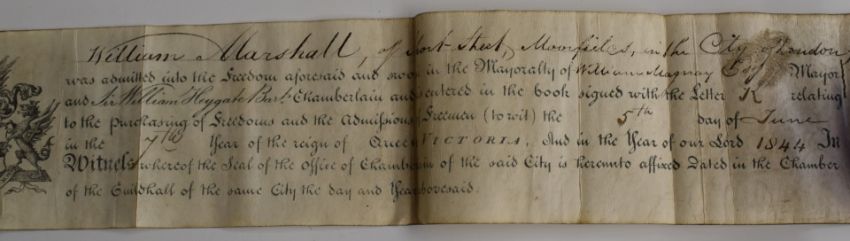 William Marshall, of Short Street, Moorfields, in the City of London
was admitted into the Freedom aforesaid and sworn in the Mayoralty of William Magnay Esqr Mayor
and Sir William Heygate Bart. Chamberlain and entered in the book signed with the Letter K relating
to the Purchasing of Freedoms and the Admissions of Freemen (to wit) the 5th day of June
in the 7th Year of the reign of Queen VICTORIA, And in the Year of our Lord 1844 In
Witness whereof the Seal of the Office of Chamberlain of the said City is hereunto affixed Dated in the Chamber
of the Guildhall of the same City the day and Year abovesaid.